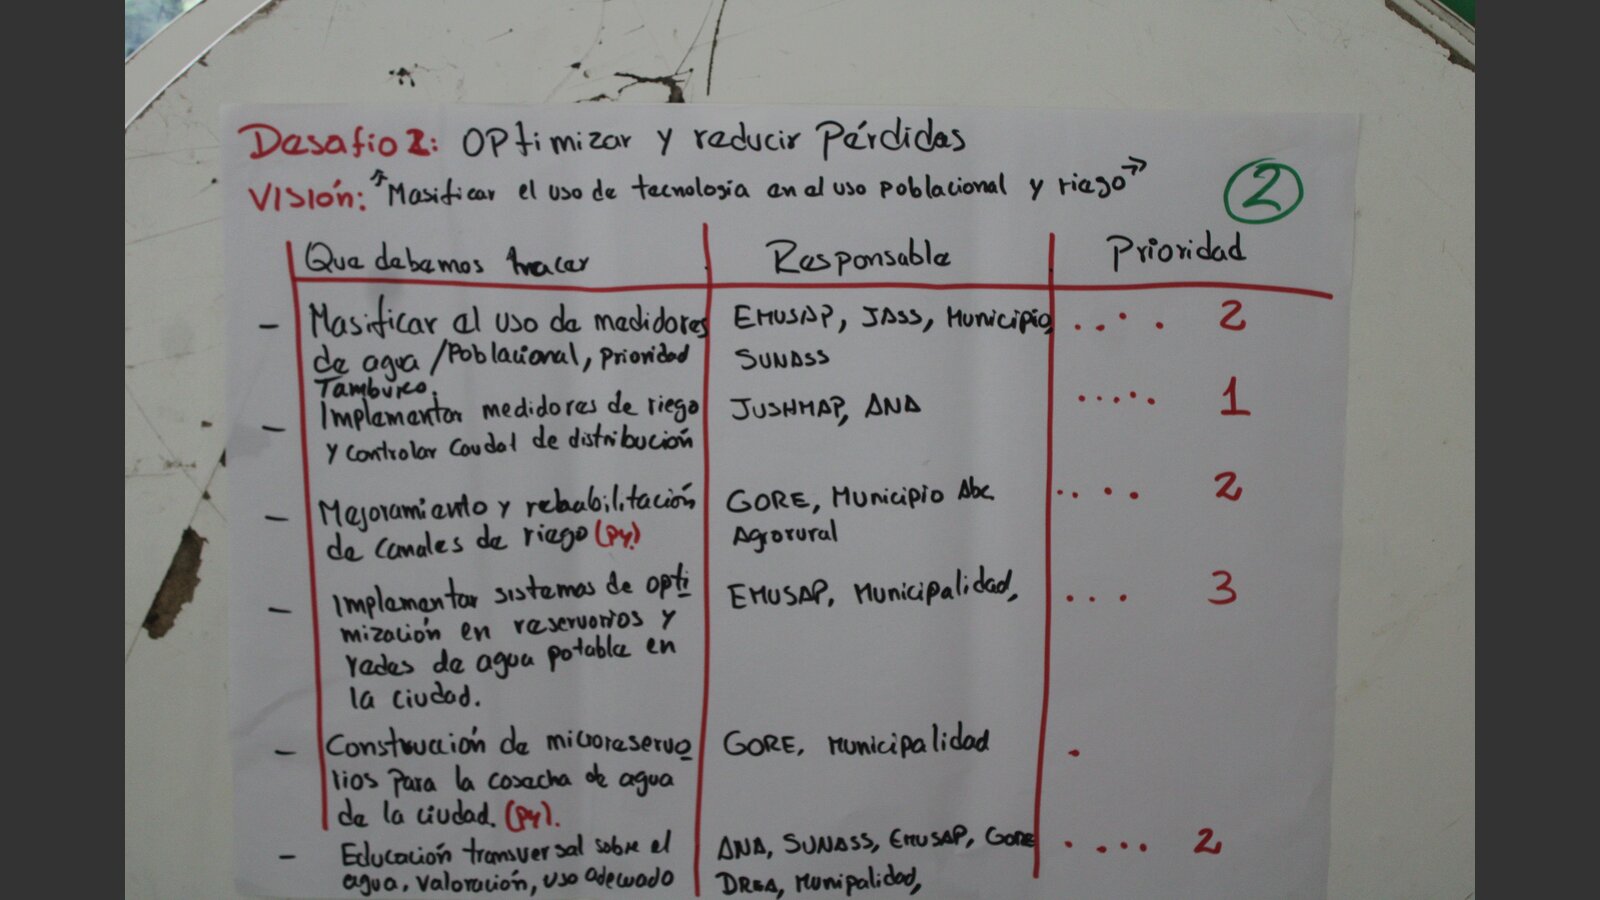 Desafio 2: OPtimizar y reducir Pérdidas
VISIÓN: "Masificar el uso de tecnología en el uso poblacional y riego"
2
Que debemos hacer Responsable Prioridad
- Masificar el uso de medidores EMUSAP, JASS, Municipio, .... 2
de agua / Poblacional, prioridad SUNASS
Tamburco.
- Implementar medidores de riego JUSHMAP, ANA ..... 1
y controlar caudal de distribución
- Mejoramiento y rehabilitación GORE, Municipio Abc. .... 2
de canales de riego (py) Agrorural
- Implementar sistemas de opti EMUSAP, Municipalidad, ... 3
mización en reservorios y
redes de agua potable en
la ciudad.
- Construcción de microreservo GORE, Municipalidad .
rios para la cosecha de agua
de la ciudad. (py).
- Educación transversal sobre el ANA, SUNASS, EMUSAP, Gore .... 2
agua, valoración, uso adecuado DREA, Munipalidad,